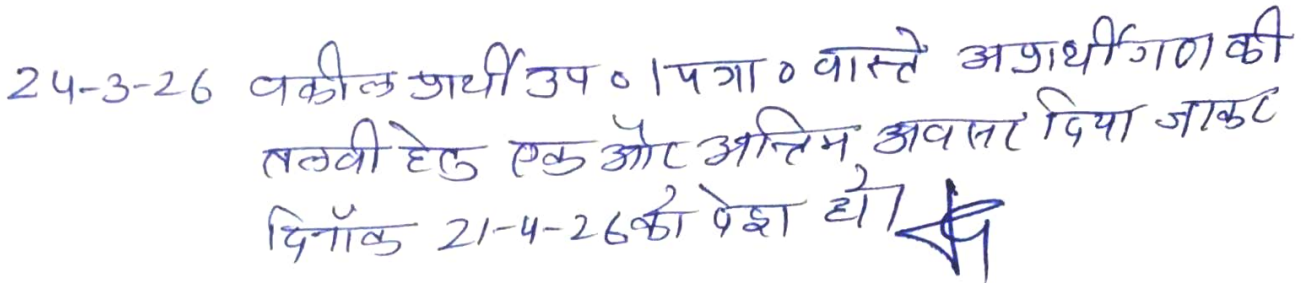 24-3-26 वकील प्रार्थी उप०। पत्रा० वास्ते अप्रार्थीगण की
तलवी हेतु एक और अन्तिम अवसर दिया जाकर
दिनाँक 21-4-26 को पेश हो।